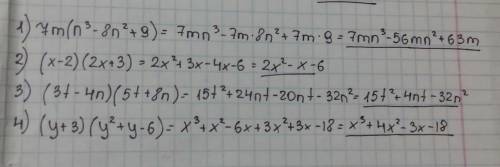 1) 7m(n³-8n²+9)=7mn³-7m·8n²+7m·9=7mn³-56mn²+63m
2) (x-2)(2x+3)=2x²+3x-4x-6=2x²-x-6
3) (3t-4n)(5t+8n)=15t²+24nt-20nt-32n²=15t²+4nt-32n²
4) (y+3)(y²+y-6)=x³+x²-6x+3x²+3x-18=x³+4x²-3x-18